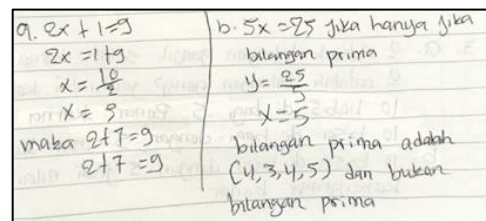 a. 2x + 1 = 9
2x = 1 + 9
x = 10/2
x = 5
maka 2+7 = 9
2+7 = 9
b. 5x = 25 jika hanya jika
bilangan prima
y = 25/5
x = 5
bilangan prima adalah
(4, 3, 4, 5) dan bukan
bilangan prima